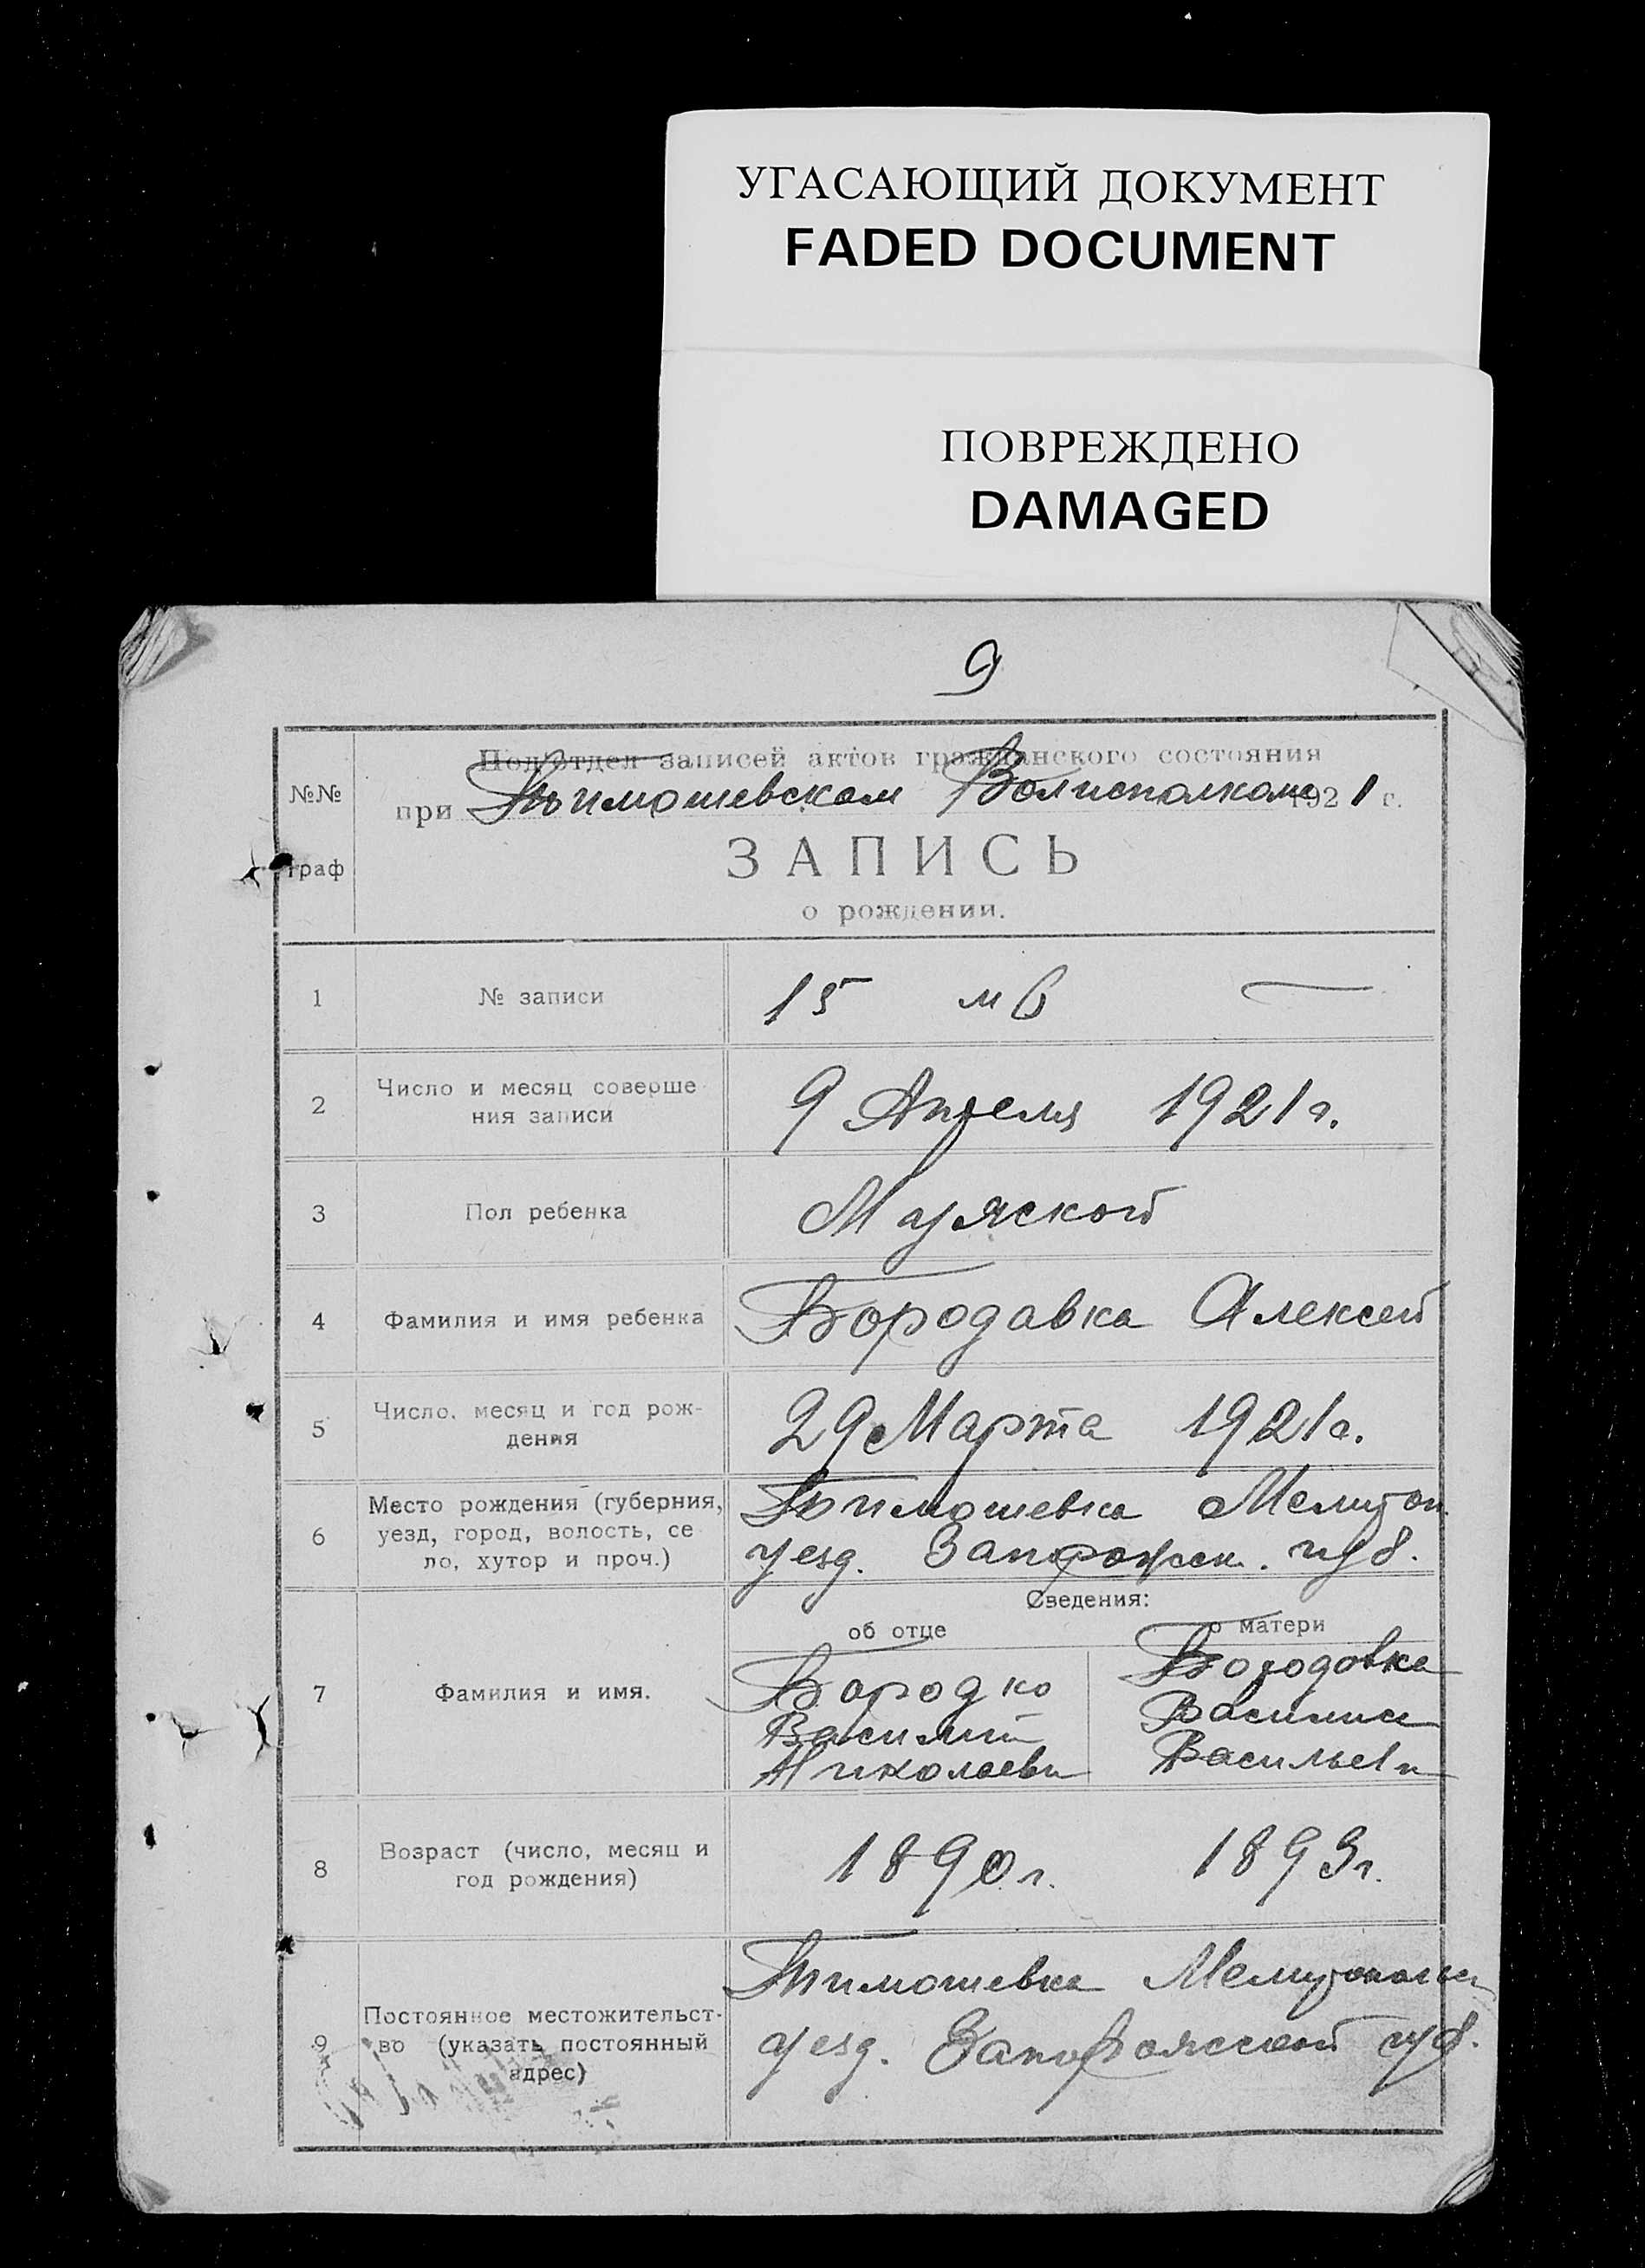 УГАСАЮЩИЙ ДОКУМЕНТ
FADED DOCUMENT
ПОВРЕЖДЕНО
DAMAGED
9
Подотдел записей актов гражданского состояния
при Тимошевском Волисполкоме 1921 г.
№№
граф
ЗАПИСЬ
о рождении.
1
№ записи
15 м
2
Число и месяц соверше
ния записи
9 Апреля 1921 г.
3
Пол ребенка
Мужской
4
Фамилия и имя ребенка
Бородавка Алексей
5
Число, месяц и год рож-
дения
29 Марта 1921 г.
6
Место рождения (губерния,
уезд, город, волость, се
ло, хутор и проч.)
Тимошевка Мелитоп
уезд. Запорожск. губ.
Сведения:
об отце
о матери
7
Фамилия и имя.
Бородко
Василий
Николаевич
Бородовка
Васильев
8
Возраст (число, месяц и
год рождения)
1890 г.
1893 г.
9
Постоянное местожительст-
во (указать постоянный
адрес)
Тимошевка
уезд. Запорожской губ.